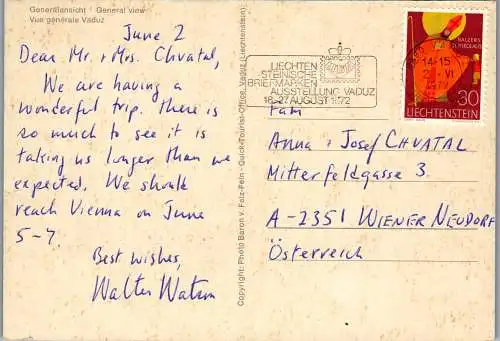 Generalansicht General view
Vue générale Vaduz
June 2
Dear Mr. + Mrs. Chvatal,
We are having a
wonderful trip. there is
so much to see it is
taking us longer than we
expected. We should
reach Vienna on June
5-7.
Best wishes,
Walter Watson
Copyright: Photo Baron v. Falz-Fein - Quick-Tourist-Office, Vaduz (Liechtenstein)
LIECHTEN
STEINISCHE
BRIEFMARKEN
AUSSTELLUNG VADUZ
18-27 AUGUST 1972
14-15
VI
BALZERS
ST. NIKOLAUS
30
LIECHTENSTEIN
Fam
Anna + Josef CHVATAL
Mitterfeldgasse 3
A-2351 WIENER NEUDORF
Österreich